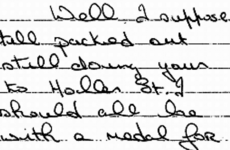 Well I suppose
till packed out
still doing your
to Holles St. I
should all be
with a medal for